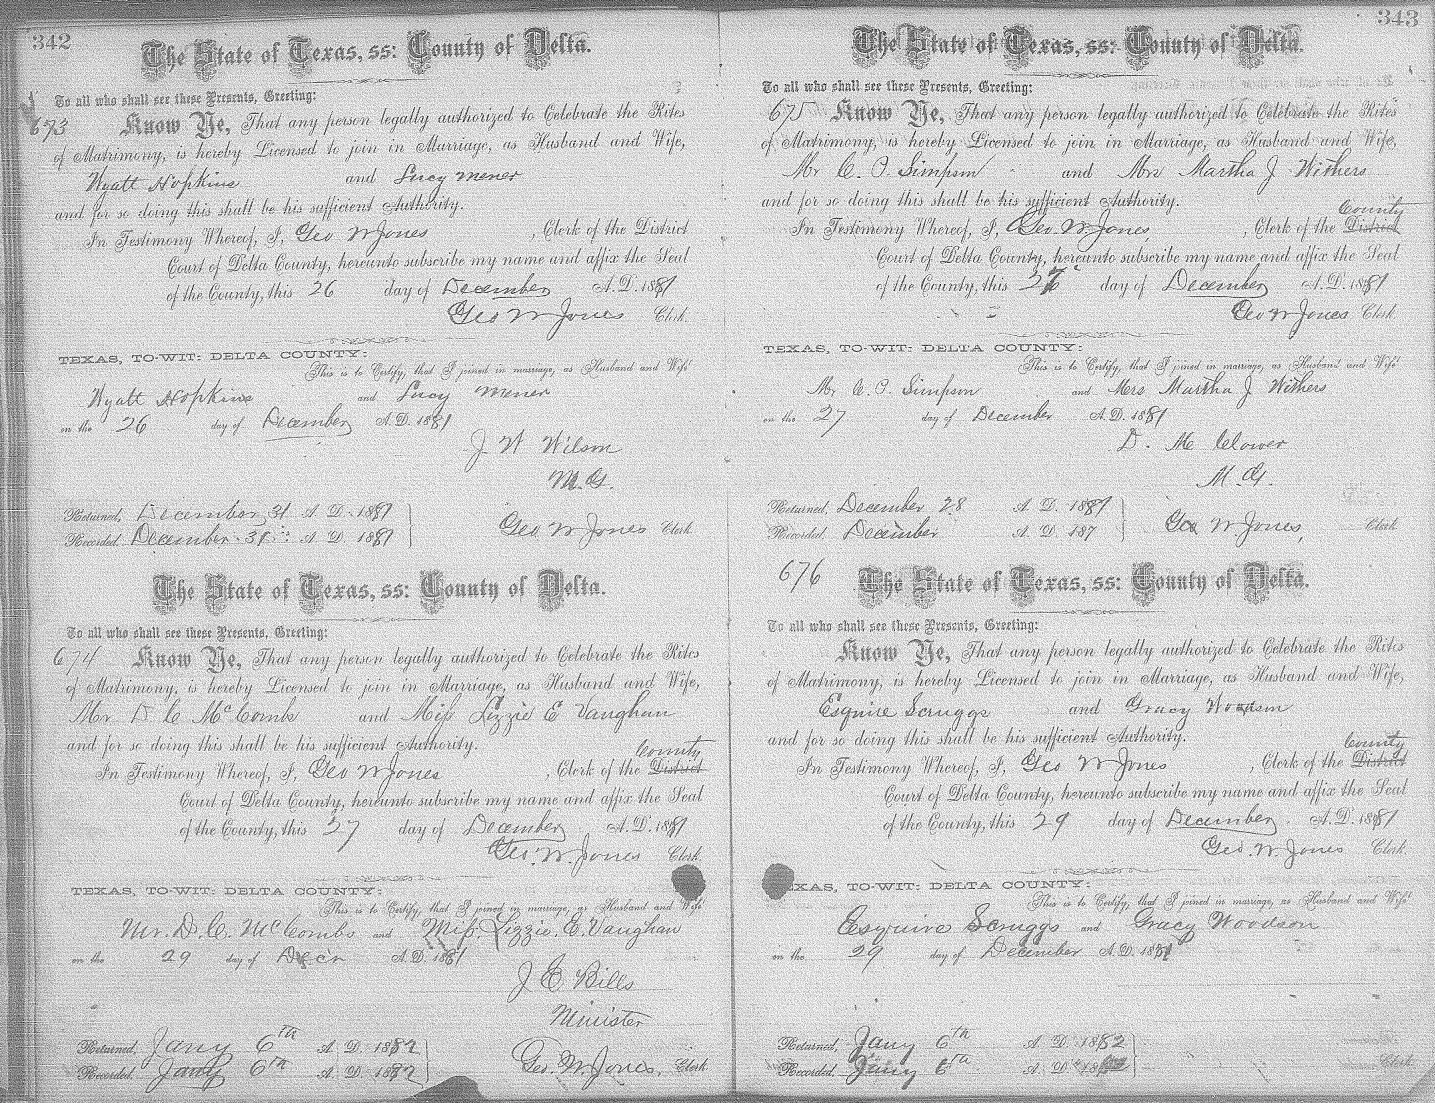 342
The State of Texas, ss: County of Delta.
To all who shall see these Presents, Greeting:
673 Know Ye, That any person legally authorized to Celebrate the Rites
of Matrimony, is hereby Licensed to join in Marriage, as Husband and Wife,
Wyatt Hopkins and Lucy Mener
and for so doing this shall be his sufficient Authority.
In Testimony Whereof, I, Geo W Jones, Clerk of the District
Court of Delta County, hereunto subscribe my name and affix the Seal
of the County, this 26 day of December A. D. 1881
Geo W Jones Clerk.
TEXAS, TO-WIT: DELTA COUNTY:
This is to Certify, that I joined in marriage, as Husband and Wife
Wyatt Hopkins and Lucy Mener
on the 26 day of December A. D. 1881
J W Wilson
M. G.
Returned, December 31 A. D. 1881
Recorded. December 31 A. D. 1881
Geo W Jones Clerk
The State of Texas, ss: County of Delta.
To all who shall see these Presents, Greeting:
674 Know Ye, That any person legally authorized to Celebrate the Rites
of Matrimony, is hereby Licensed to join in Marriage, as Husband and Wife,
Mr D C McCombs and Miss Lizzie E Vaughan
and for so doing this shall be his sufficient Authority.
County
In Testimony Whereof, I, Geo W Jones, Clerk of the District
Court of Delta County, hereunto subscribe my name and affix the Seal
of the County, this 27 day of December A. D. 1881
Geo. W. Jones Clerk.
TEXAS, TO-WIT: DELTA COUNTY:
This is to Certify, that I joined in marriage, as Husband and Wife
Mr. D. C. McCombs and Miss. Lizzie. E. Vaughan
on the 29 day of Decr A. D. 1881
J E Bills
Minister
Returned, Jany 6th A. D. 1882
Recorded. Jany 6th A. D. 1882
Geo. W. Jones, Clerk
343
The State of Texas, ss: County of Delta.
To all who shall see these Presents, Greeting:
675 Know Ye, That any person legally authorized to Celebrate the Rites
of Matrimony, is hereby Licensed to join in Marriage, as Husband and Wife,
Mr C. P. Simpson and Mrs Martha J Withers
and for so doing this shall be his sufficient Authority.
County
In Testimony Whereof, I, Geo. W. Jones, Clerk of the District
Court of Delta County, hereunto subscribe my name and affix the Seal
of the County, this 27 day of December A. D. 1881
Geo W Jones Clerk.
TEXAS, TO-WIT: DELTA COUNTY:
This is to Certify, that I joined in marriage, as Husband and Wife
Mr C. P. Simpson and Mrs Martha J Withers
on the 27 day of December A. D. 1881
D. M Clower
M. G.
Returned, December 28 A. D. 1881
Recorded. December A. D. 187
Geo W Jones, Clerk
676 The State of Texas, ss: County of Delta.
To all who shall see these Presents, Greeting:
Know Ye, That any person legally authorized to Celebrate the Rites
of Matrimony, is hereby Licensed to join in Marriage, as Husband and Wife,
Esquire Scruggs and Gracy Woodson
and for so doing this shall be his sufficient Authority.
County
In Testimony Whereof, I, Geo W Jones, Clerk of the District
Court of Delta County, hereunto subscribe my name and affix the Seal
of the County, this 29 day of December A. D. 1881
Geo. W. Jones Clerk.
TEXAS, TO-WIT: DELTA COUNTY:
This is to Certify, that I joined in marriage, as Husband and Wife
Esquire Scruggs and Gracy Woodson
on the 29 day of December A. D. 1881
Returned, Jany 6th A. D. 1882
Recorded. Jany 6th A. D. 1882
Clerk